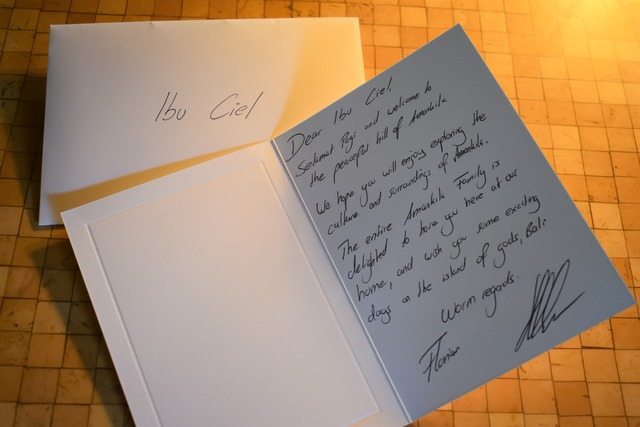 Ibu Ciel
Dear Ibu Ciel,
Selamat Pagi and welcome to
the peaceful hill of Amankila
We hope you will enjoy exploring the
culture and surroundings of Amankila.
The entire Amankila Family is
delighted to have you here at our
home, and wish you some exciting
days on the island of gods, Bali
Warm regards.
Florian